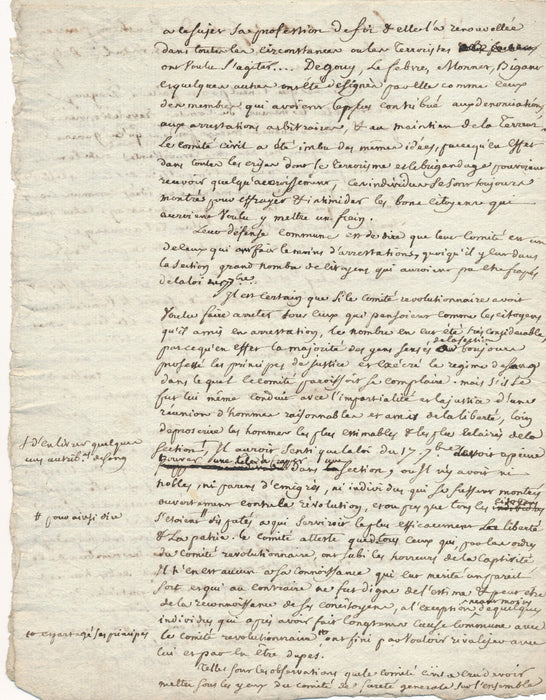 a ce sujet sa profession de foi & elle l'a renouvellée
dans toutes les circonstances ou les Terroristes
ont voulu s'agiter.... Degouy, Le febvre, Monner, Bigant
et quelques autres ont été désignés par elle comme ceux
des membres qui avoient le plus contribué aux dénonciations,
aux arrestations arbitraires, & au maintien de la Terreur.
Le comité civil a été imbu des mêmes idées, parce qu'en effet
dans toutes les crises dont le terrorisme et le brigandage pouvoient
recevoir quelqu'accroissement, ces individus se sont toujours
montrés pour effrayer & intimider les bons citoyens qui
auroient voulu y mettre un frein.
Leur défense commune est de dire que leur comité est un
de ceux qui ont fait le moins d'arrestations, quoiqu'il y eut dans
la section grand nombre de citoyens qui auroient pu être frappés
de la loi du 17 7bre
Il est certain que si le comité révolutionnaire avoit
voulu faire arrêter tous ceux qui pensoient comme les citoyens
qu'il a mis en arrestation, le nombre en eut été très considérable,
parce qu'en effet la majorité des gens sensés de la section a toujours
professé les principes de justice et exécré le régime de sang
dans lequel ce comité paroissoit se complaire. mais s'il se
fut lui même conduit avec l'impartialité et la justice d'une
réunion d'hommes raisonnables et amis de la liberté, loin
de proscrire les hommes les plus estimables & les plus éclairés de la
section, Il auroit senti que la loi du 17 7bre devoit à peine
/ d'en livrer quelques
uns au tribal de sang
dans la section, ou il n'y avoit ni
nobles, ni parens d'émigrés, ni individus qui se fussent montrés
ouvertement contre la révolution, et ou presque tous les citoyens
# pour ainsi dire
s'étoient # disputés a qui serviroit le plus efficacement la liberté
& la patrie. Le comité atteste que de tous ceux qui, par les ordres
du comité révolutionnaire, ont subi les horreurs de la captivité
Il n'en est aucun a sa connoissance qui eut mérité un pareil
sort et qui au contraire ne fut digne de l'estime & peut être
de la reconnoissance de ses concitoyens, a l'exception néanmoins de quelques
individus qui après avoir fait longtems cause commune avec
le comité révolutionnaire ont fini par vouloir rivaliser avec
et partagé ses principes
lui et par en être dupes.
Telles sont les observations que le comité civil a cru devoir
mettre sous les yeux du comité de sureté générale sur l'ensemble